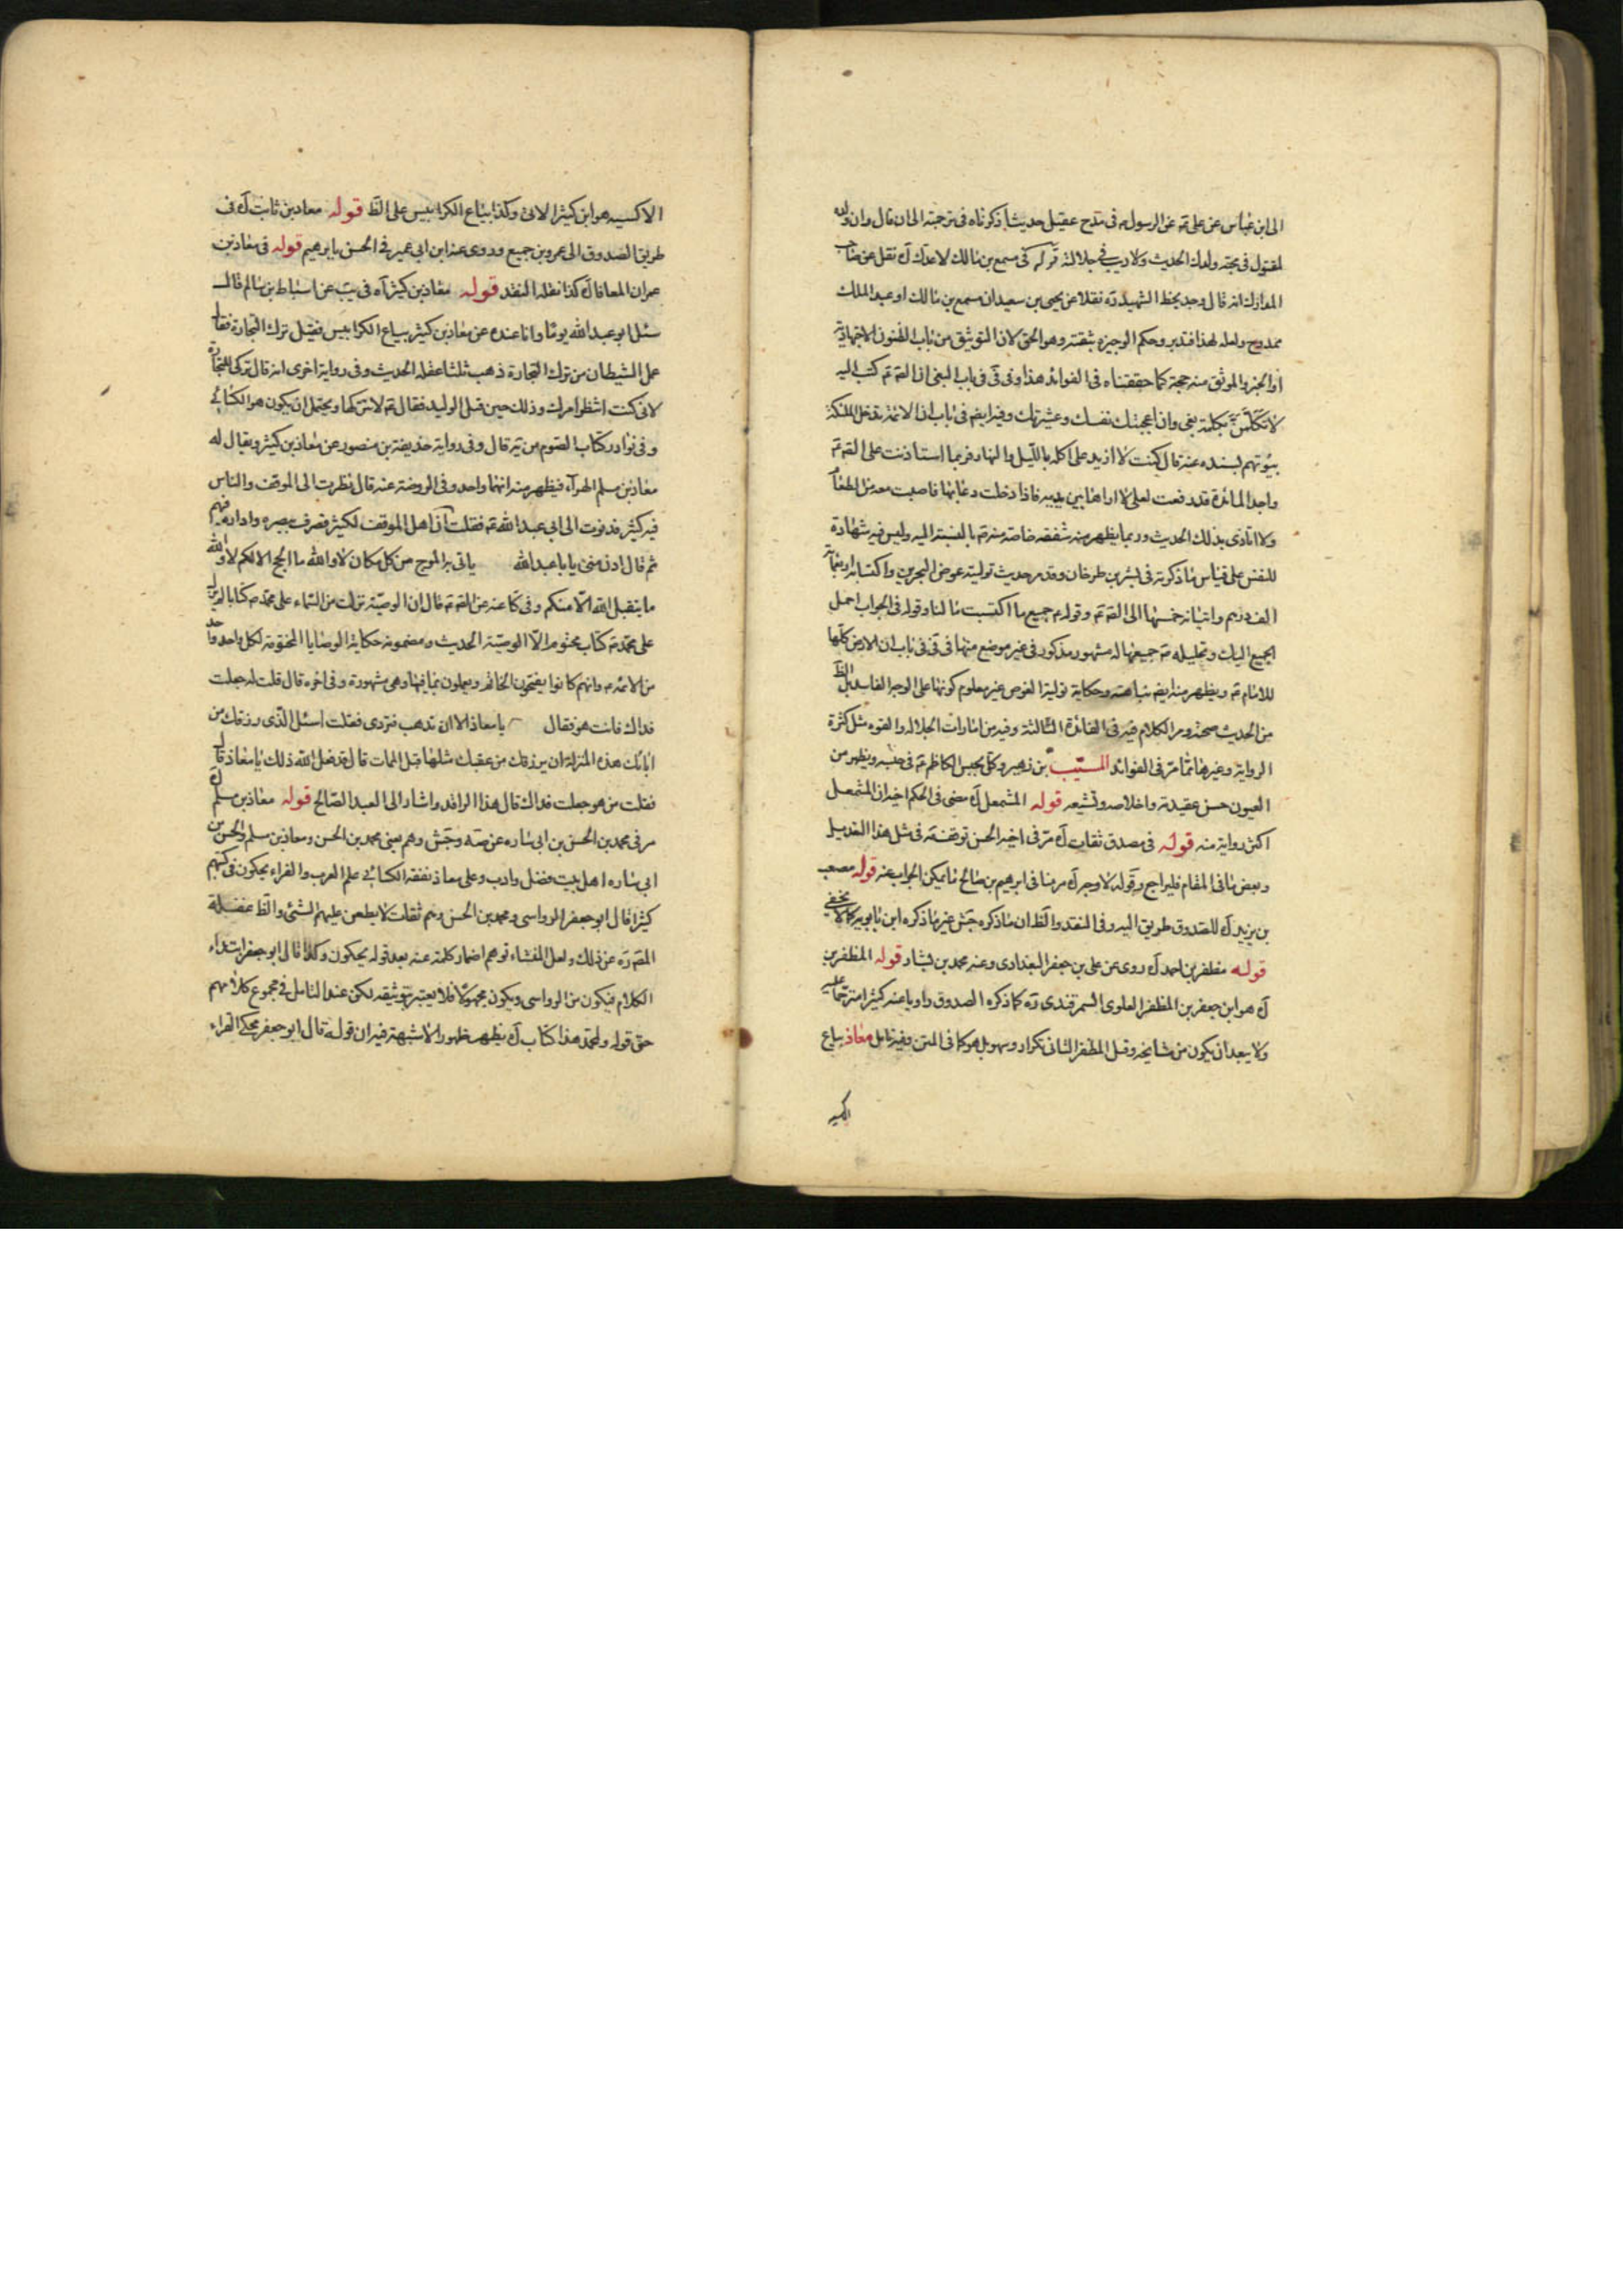 الى ابن عباس عن على ع عن الرسول ص فى مدح عقيل حديثا ذكرناه فى ترجمته الى ان قال وان ولده
لمقتول فى محبة ولدك الحديث ولا ريب فى جلالته قوله فى مسمع بن مالك لا عدك آه نقل عن صاحب
المدارك انه قال وجد بخط الشهيد ره نقلا عن يحيى بن سعيد ان مسمع بن مالك او عبد الملك
ممدوح ولعله لهذا فتدبر وحكم الوجيزه بثقته وهو الحق لان التوثيق من باب الظنون الاجتهادية
او الخبر والموثق منه حجة كما حققناه فى الفوائد هذا وفى فى باب البغى ان الصم ع كتب اليه
لا تكلمن بكلمة بغى وان اعجبتك نفسك وعشيرتك وفيه ايضم فى باب ان الائمة تدخل الملئكة
بيوتهم بسنده عنه قال كنت لا ازيد على اكلة بالليل والنهار فربما استاذنت على الصم ع
واجد المائدة قد رفعت لعلى لا اراها بين يديه فاذا دخلت دعا بها فاصبت معه من الطعام
ولا اتأذى بذلك الحديث وربما يظهر منه شفقة خاصة منه ع بالنسبة اليه وليس فيه شهادة
للنفس على قياس ما ذكرته فى بشر بن طرخان وقد مر حديث توليته غوص البحرين واكتسابه اربعمائة
الف درهم واتيانه خمسها الى الصم ع وقوله ع جميع ما اكتسبت مالنا وقوله فى الجواب احمل
الجميع اليك وتحليله ع جميعها له مشهور مذكور فى غير موضع منها فى فى باب ان الارض كلها
للامام ع ويظهر منه ايضم نباهته وحكاية تولية الغوص غير معلوم كونها على الوجه الفاسد بل الظ
من الحديث صحته ومر الكلام فيه فى الفائدة الثالثة وفيه من امارات الجلالة والقوه مثل كثرة
الرواية وغيرها مما مر فى الفوائد المسيب بن زهير وكل بحبس الكاظم ع فى حبسه ويظهر من
العيون حسن عقيدته واخلاصه وتشيعه قوله المشمعل آه مضى فى الحكم اخيه ان المشمعل
اكثر رواية منه قوله فى مصدق ثقات آه مر فى اخيه الحسن توقفه فى مثل هذا التعديل
وبعض ما فى المقام فليراجع وقوله لا وجه آه مر منا فى ابرهيم بن صالح ما يمكن الجواب عنه قوله مصعب
بن يزيد آه للصدوق طريق اليه وفى النقد والظ ان ما ذكره جش غير ما ذكره ابن بابويه كما لا يخفى
قوله مظفر بن احمد آه روى عن على بن جعفر البغدادى وعنه محمد بن بشار قوله المظفر بن
آه هو ابن جعفر بن المظفر العلوى السمرقندى ره كما ذكره الصدوق راويا عنه كثيرا مترحما عليه
ولا يبعد ان يكون من مشايخه وقيل المظفر الثانى تكرار وسهو بل هو كما فى المتن وفيه تامل معاذ بياع
الاكسيه
الاكسيه هو ابن كثير الاتى وكذا بياع الكرابيس على الظ قوله معاذ بن ثابت آه فى
طريق الصدوق الى عمرو بن جميع وروى عنه ابن ابى عمير فى الحسن بابرهيم قوله فى معاذ بن
عمران المعافا آه كذا نقله النقد قوله معاذ بن كثير آه فى يب عن اسباط بن سالم قال
سئل ابو عبد الله يوما وانا عنده عن معاذ بن كثير بياع الكرابيس فقيل ترك التجارة فقال
عمل الشيطان من ترك التجارة ذهب ثلثا عقله الحديث وفى رواية اخرى انه قال تركى للتجارة
لانى كنت انتظر امرك وذلك حين قتل الوليد فقال ع لا تتركها ويحتمل ان يكون هو الكسائى
وفى نوادر كتاب الصوم من يه قال وفى رواية حذيفة بن منصور عن معاذ بن كثير ويقال له
معاذ بن مسلم الهراء فيظهر منه انهما واحد وفى الروضة عنه قال نظرت الى الموقف والناس
فيه كثير فدنوت الى ابى عبد الله ع فقلت ان اهل الموقف لكثير فصرف ببصره واداره فيهم
ثم قال ادن منى يا با عبد الله ياتى به الموج من كل مكان لا والله ما الحج الا لكم لا والله
ما يتقبل الله الا منكم وفى كا عنه عن الصم ع قال ان الوصية نزلت من السماء على محمد ص كتابا لم ينزل
على محمد ص كتاب مختوم الا الوصية الحديث ومضمونه حكاية الوصايا المختومة لكل واحد واحد
من الائمه ع وانهم كانوا يفتحون الخاتم ويعملون بما فيها وهى مشهورة وفى اخره قال قلت له جعلت
فداك فانت هو فقال يا معاذ الا ان تذهب فتروى فقلت اسئل الذى رزقك من
ابائك هذه المنزلة ان يرزقك من عقبك مثلها قبل الممات قال قد فعل الله ذلك يا معاذ قال
فقلت من هو جعلت فداك قال هذا الراقد واشار الى العبد الصالح قوله معاذ بن مسلم آه
مر فى محمد بن الحسن بن ابى ساره عن صه وجش وهم يعنى محمد بن الحسن ومعاذ بن مسلم والحسن بن
ابى ساره اهل بيت فضل وادب وعلى معاذ تفقه الكسائى علم العرب والفراء يحكون فى كتبهم
كثيرا قال ابو جعفر الرواسى ومحمد بن الحسن وهم ثقات لا يطعن عليهم الشئ والظ غفلة
المصم ره عن ذلك ولعل المنشاء توهم اضمار كلمة عنه بعد قوله يحكون وكلا قال ابو جعفر ابتداء
الكلام فيكون من الرواسى ويكون مجهولا فلا يعتبر بتوثيقه لكن عند التامل فى مجموع كلامهم
حق قوله ولمحمد هذا كتاب آه يظهر ظهورا لا شبهة فيه ان قوله قال ابو جعفر محكى الفراء